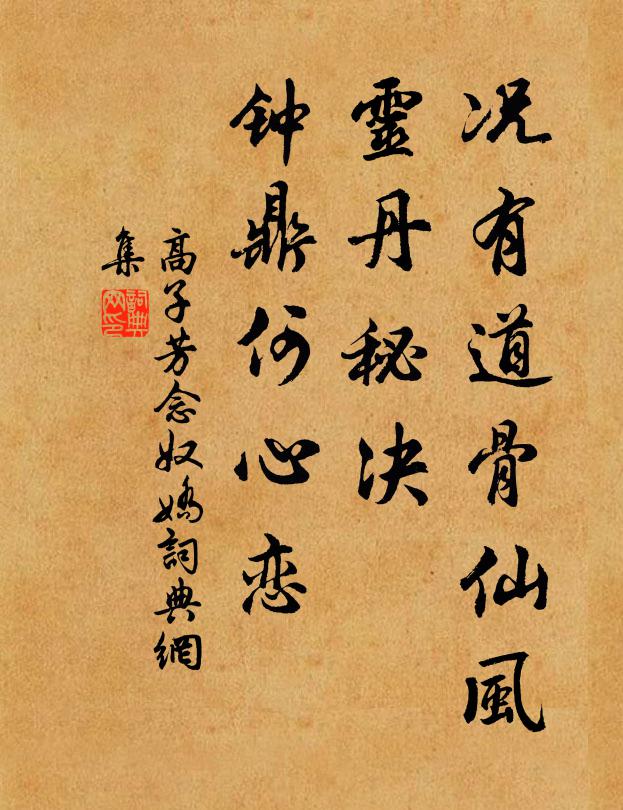 况有道骨仙風
靈丹秘决
钟鼎何心恋
高子芳念奴嬌詞典網
集
詞典网印